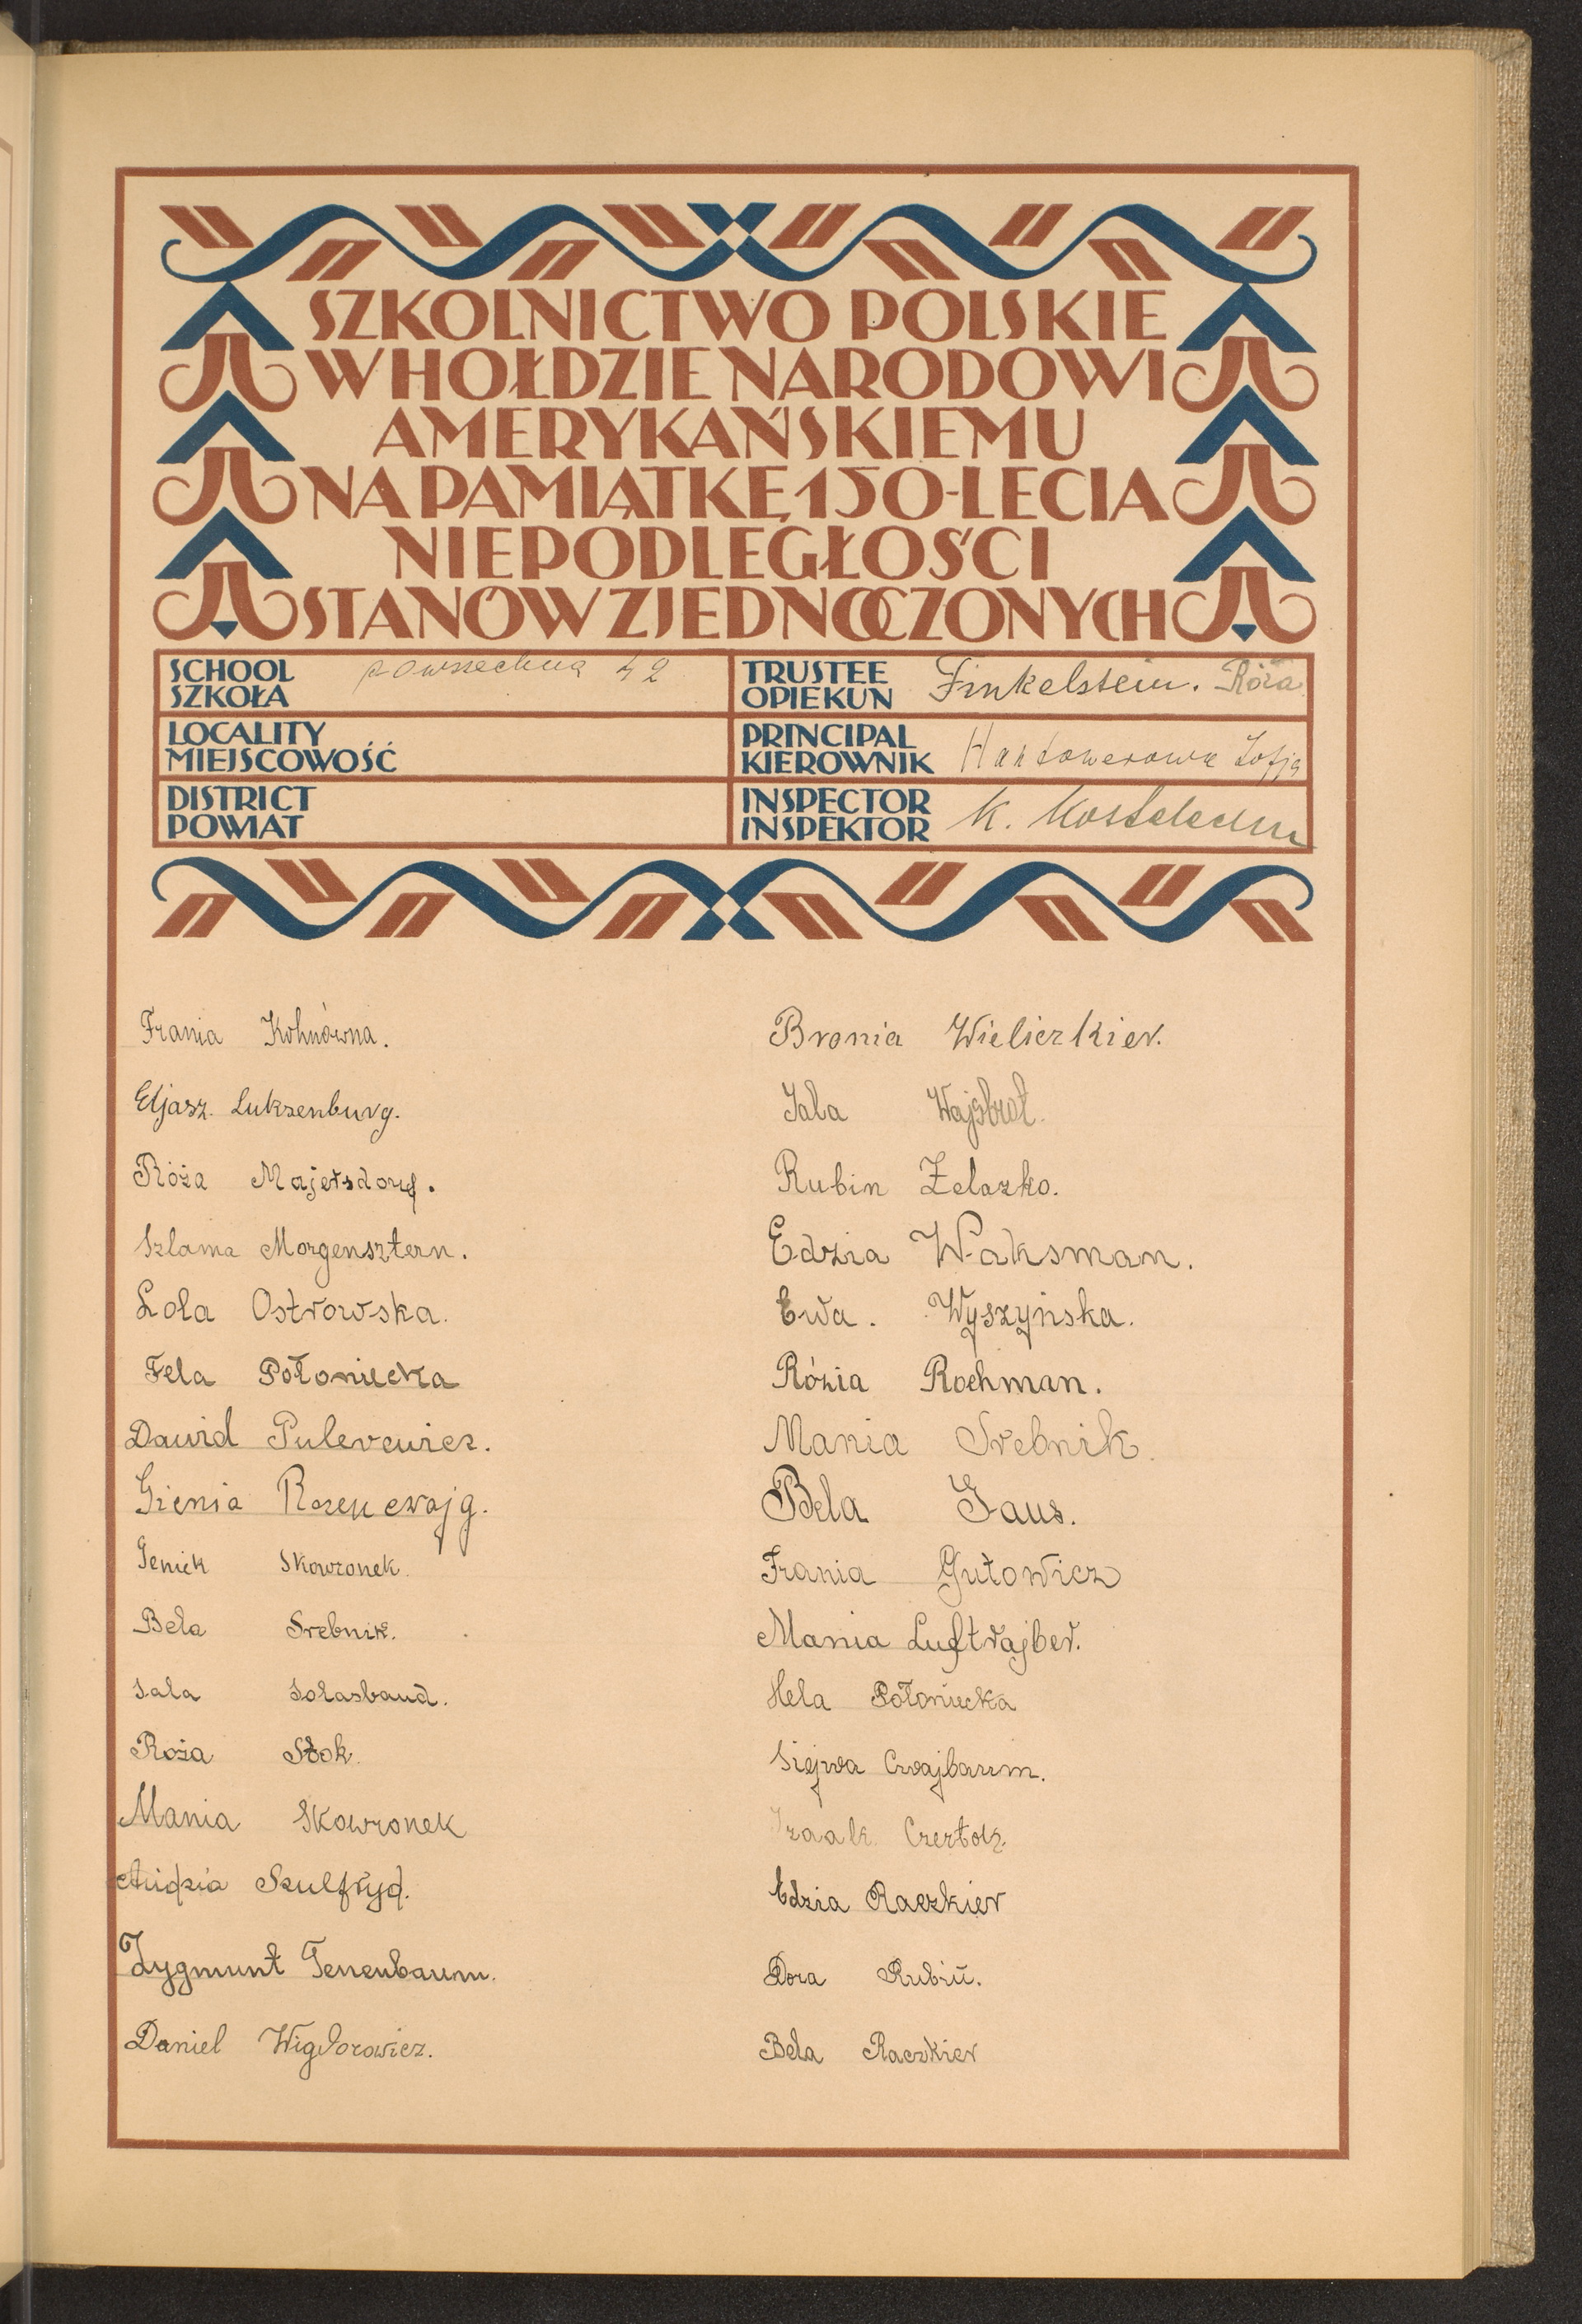 SZKOLNICTWO POLSKIE
W HOŁDZIE NARODOWI
AMERYKAŃSKIEMU
NA PAMIĄTKĘ 150-LECIA
NIEPODLEGŁOŚCI
STANÓW ZJEDNOCZONYCH
SCHOOL powszechna 42
SZKOŁA
TRUSTEE Finkelstein. Róża
OPIEKUN
LOCALITY
MIEJSCOWOŚĆ
PRINCIPAL Zofja
KIEROWNIK
DISTRICT
POWIAT
INSPECTOR K.
INSPEKTOR
Frania Kohnówna.
Eljasz. Luksenburg.
Róża Majersdorf.
Szlama Morgensztern.
Lola Ostrowska.
Fela Połoniecka
Dawid Pulerewicz.
Gienia Rozencwajg.
Geniek Skowronek.
Bela Srebnik.
Sala
Roża Stok.
Mania Skowronek
Szulfryd.
Zygmunt Tenenbaum.
Daniel Wigdorowicz.
Bronia Wieliczkier.
Sala Wajsbrot.
Rubin Żelazko.
Edzia Waksman.
Ewa. Wyszyńska.
Rózia Rochman.
Mania Srebnik.
Bela Gaus.
Frania Gutowicz
Mania Luftrajber.
Hela Połoniecka
Cwajbaum.
Izaak Czertok.
Edzia Raczkier
Dora Rubin.
Bela Raczkier